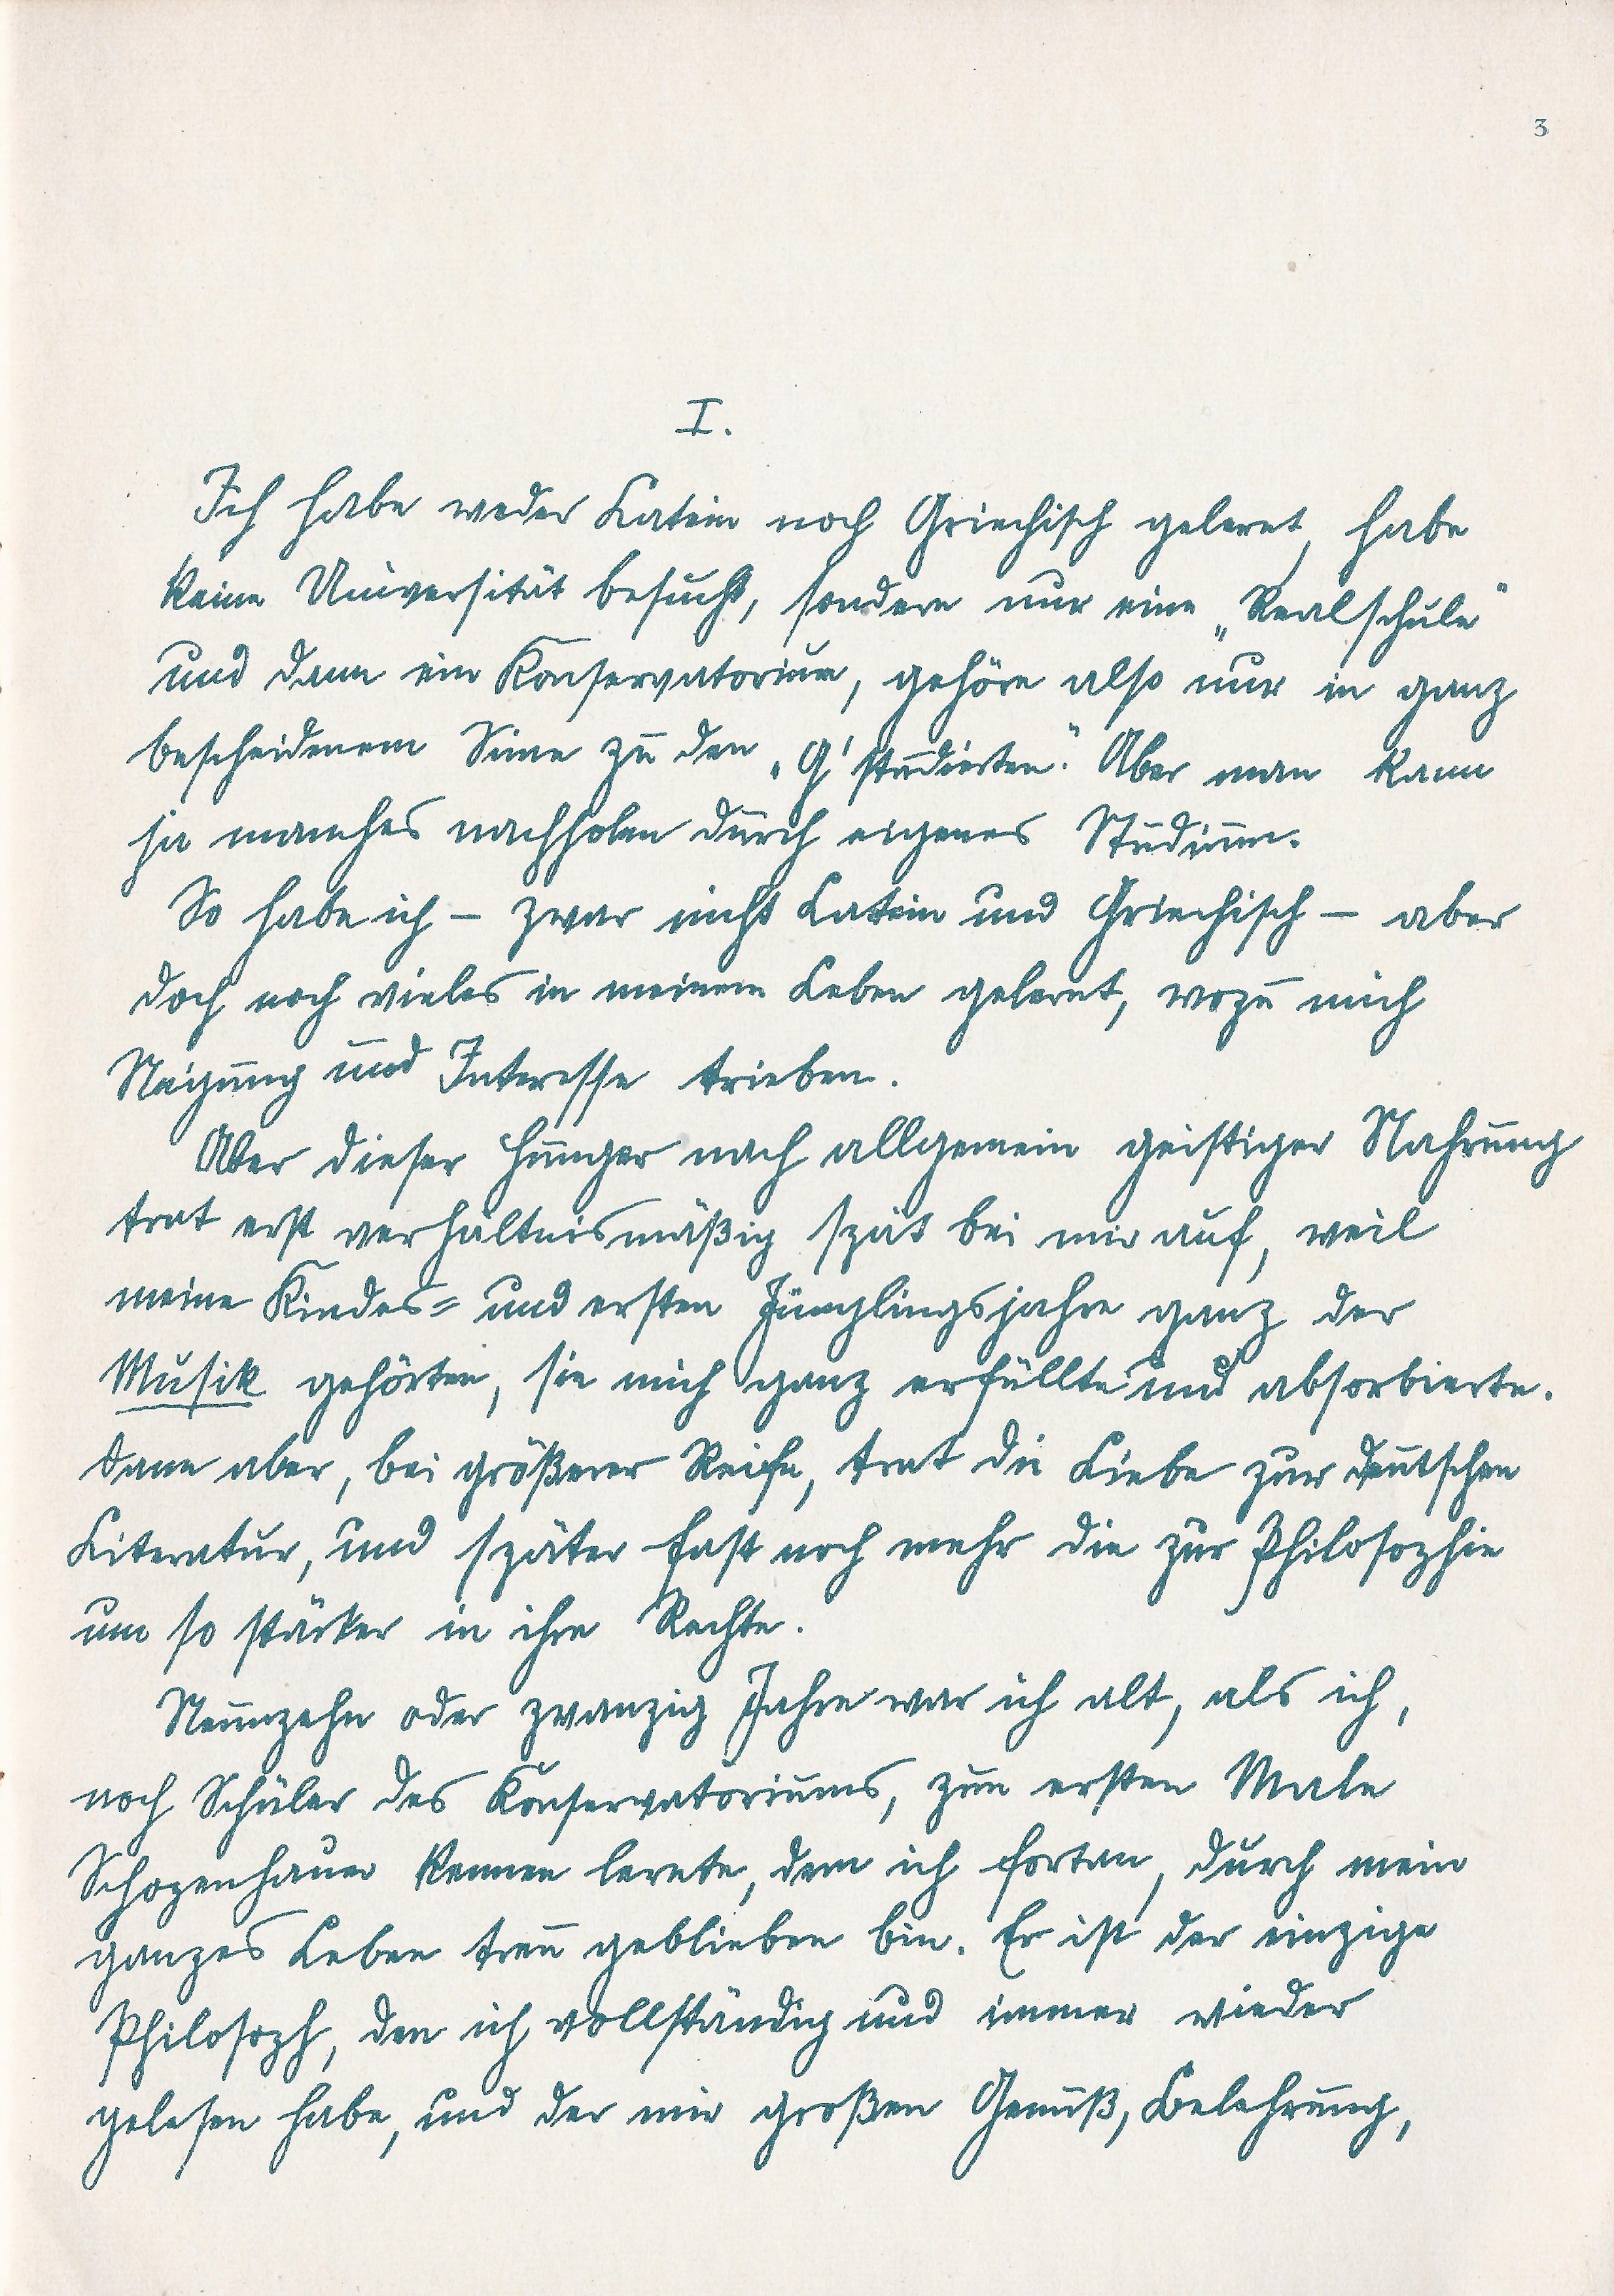 3
I.
Ich habe weder Latein noch Griechisch gelernt, habe
keine Universität besucht, sondern nur eine „Realschule"
und dann ein Konservatorium, gehöre also nur in ganz
bescheidenem Sinne zu den „G'studierten." Aber man kann
ja manches nachholen durch eigenes Studium.
So habe ich – zwar nicht Latein und Griechisch – aber
doch noch vieles in meinem Leben gelernt, wozu mich
Neigung und Interesse trieben.
Aber dieser Hunger nach allgemein geistiger Nahrung
trat erst verhältnismäßig spät bei mir auf, weil
meine Kindes= und ersten Jünglingsjahre ganz der
Musik gehörten, sie mich ganz erfüllte und absorbierte.
Dann aber, bei größerer Reife, trat die Liebe zur deutschen
Literatur, und später fast noch mehr die zur Philosophie
um so stärker in ihre Rechte.
Neunzehn oder zwanzig Jahre war ich alt, als ich,
noch Schüler des Konservatoriums, zum ersten Male
Schopenhauer kennen lernte, dem ich fortan, durch mein
ganzes Leben treu geblieben bin. Er ist der einzige
Philosoph, den ich vollständig und immer wieder
gelesen habe, und der mir großen Genuß, Belehrung,